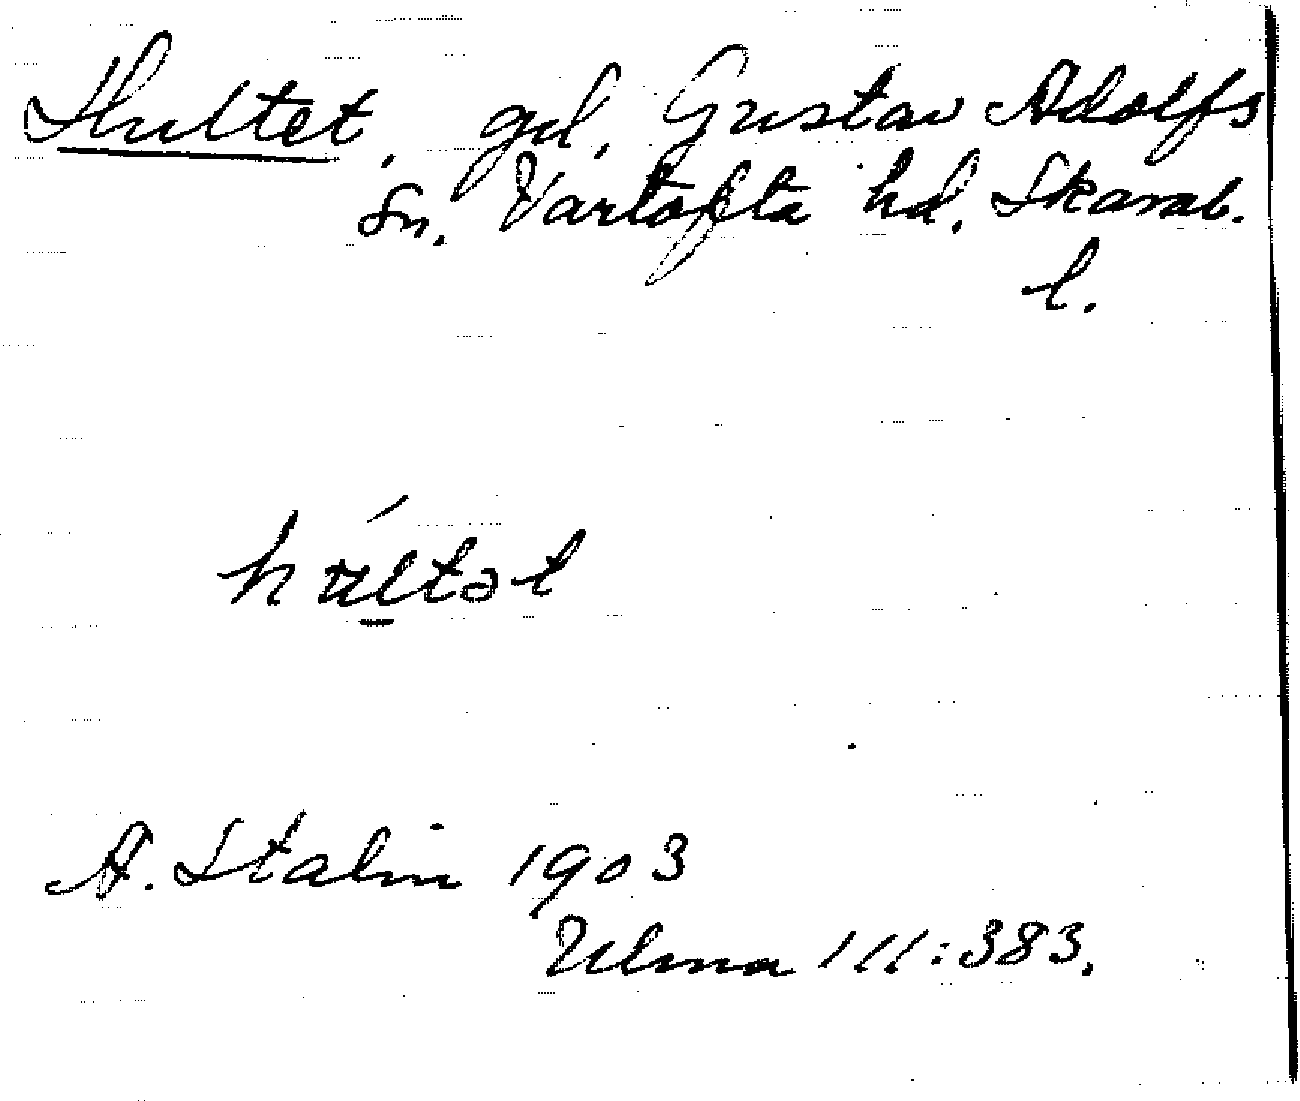 Hultet, gd, Gustav Adolfs
sn. Vartofta hd. Skarab.
l.
hu̇́ltət
A. Stalin 1903
Ulma 111:383.